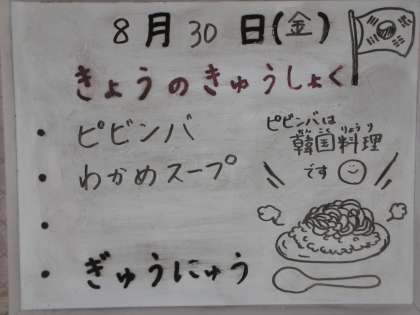 8月30日(金)
きょうのきゅうしょく
・ピビンバ
・わかめスープ
・
・ぎゅうにゅう
ピビンバは
かんこくりょうり
韓国料理
です